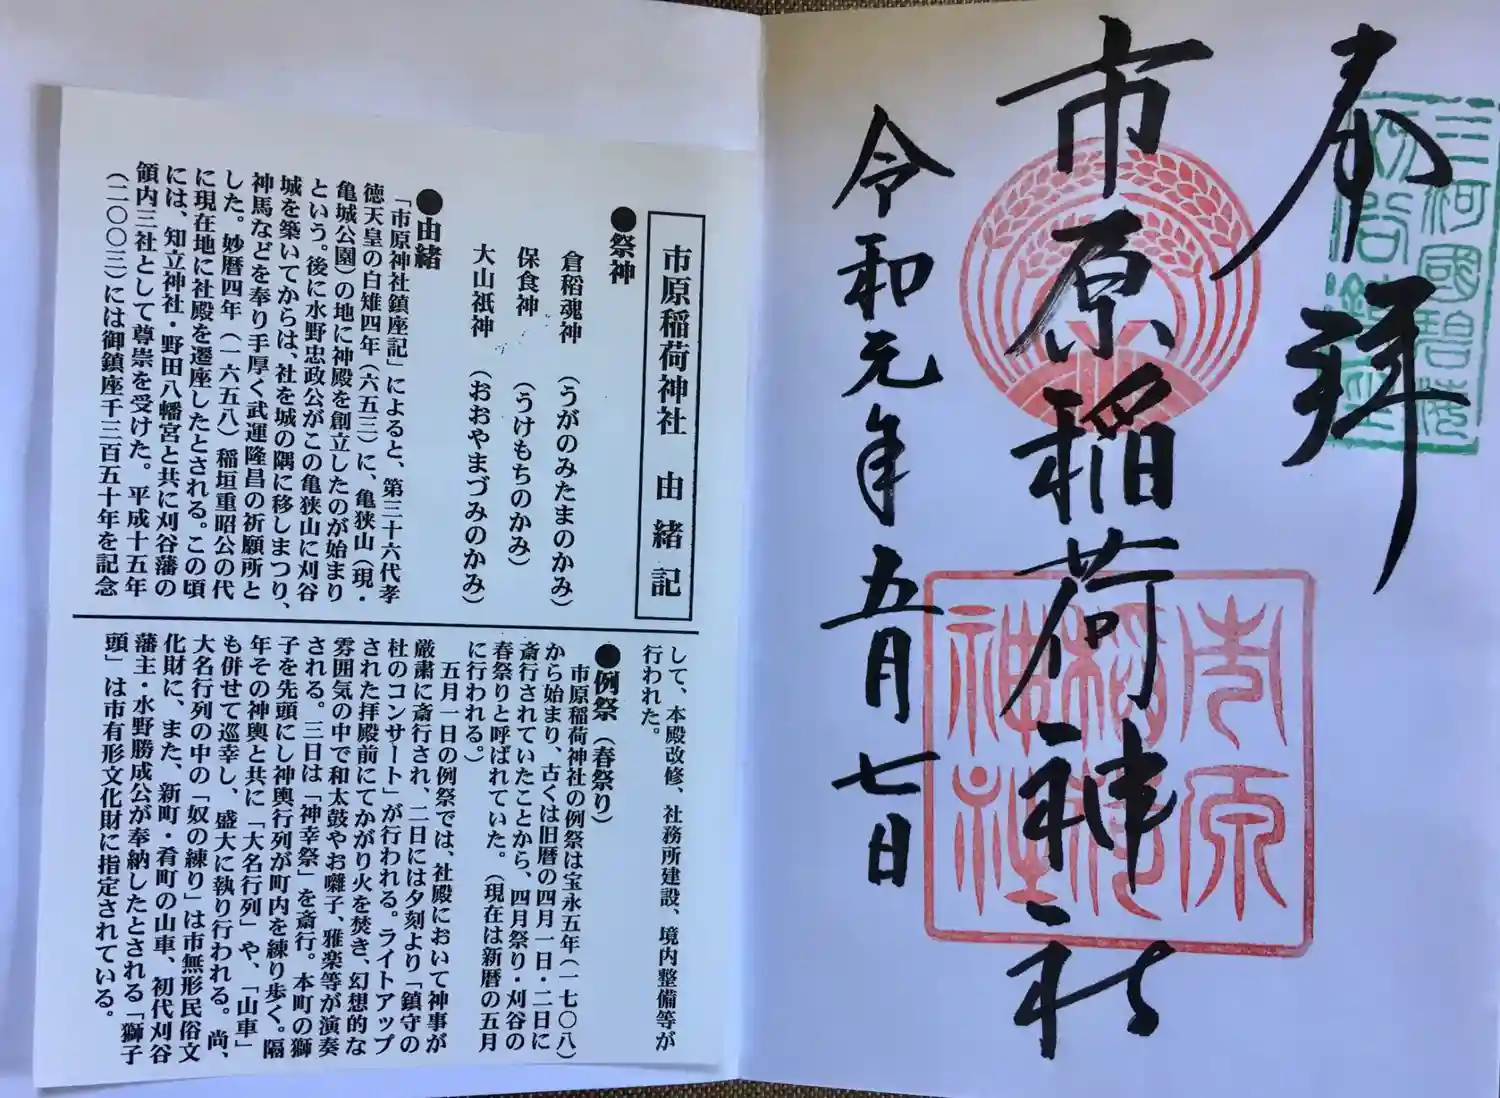 奉拝
三河國碧海
刈谷鎮座
市原稲荷神社
市原
稲荷
神社
令和元年五月七日
市原稲荷神社 由緒記
●祭神
倉稲魂神 (うがのみたまのかみ)
保食神 (うけもちのかみ)
大山祇神 (おおやまづみのかみ)
●由緒
「市原神社鎮座記」によると、第三十六代孝
徳天皇の白雉四年(六五三)に、亀狭山(現・
亀城公園)の地に神殿を創立したのが始まり
という。後に水野忠政公がこの亀狭山に刈谷
城を築いてからは、社を城の隅に移しまつり、
神馬などを奉り手厚く武運隆昌の祈願所と
した。妙暦四年(一六五八)稲垣重昭公の代
に現在地に社殿を遷座したとされる。この頃
には、知立神社・野田八幡宮と共に刈谷藩の
領内三社として尊崇を受けた。平成十五年
(二〇〇三)には御鎮座千三百五十年を記念
して、本殿改修、社務所建設、境内整備等が
行われた。
●例祭(春祭り)
市原稲荷神社の例祭は宝永五年(一七〇八)
から始まり、古くは旧暦の四月一日・二日に
斎行されていたことから、四月祭り・刈谷の
春祭りと呼ばれていた。(現在は新暦の五月
に行われる。)
五月一日の例祭では、社殿において神事が
厳粛に斎行され、二日には夕刻より「鎮守の
杜のコンサート」が行われる。ライトアップ
された拝殿前にてかがり火を焚き、幻想的な
雰囲気の中で和太鼓やお囃子、雅楽等が演奏
される。三日は「神幸祭」を斎行。本町の獅
子を先頭にし神輿行列が町内を練り歩く。隔
年その神輿と共に「大名行列」や、「山車」
も併せて巡幸し、盛大に執り行われる。尚、
大名行列の中の「奴の練り」は市無形民俗文
化財に、また、新町・肴町の山車、初代刈谷
藩主・水野勝成公が奉納したとされる「獅子
頭」は市有形文化財に指定されている。